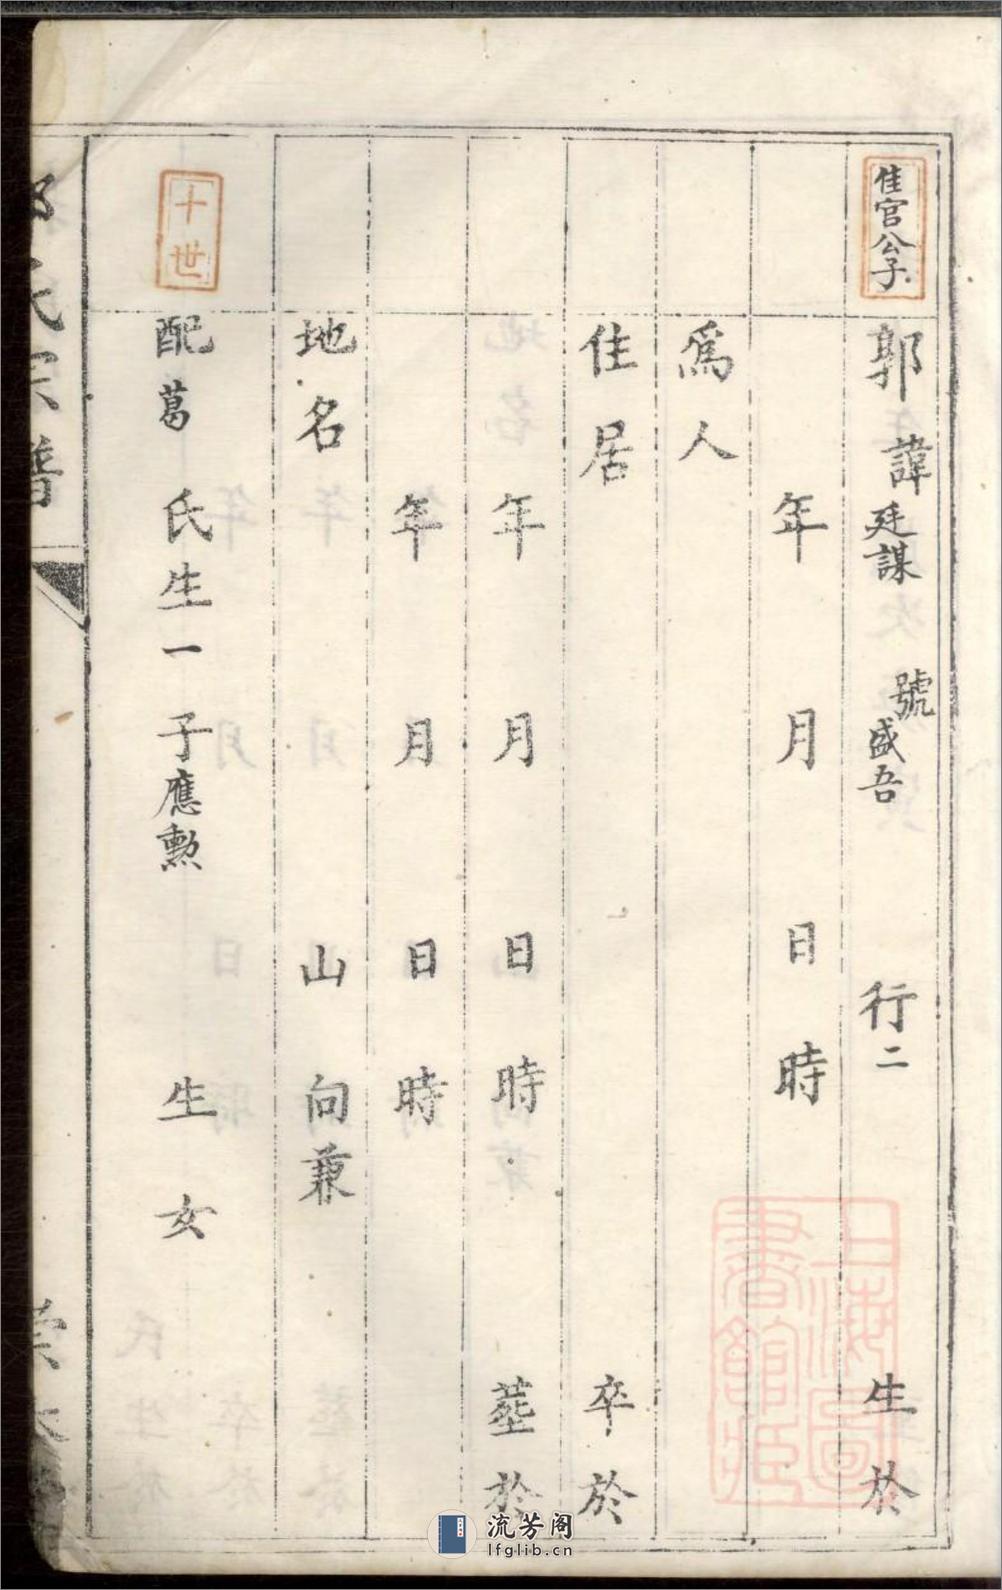 佳官公子
郭 諱廷謀 號盛吾 行二 生於
年 月 日 時
爲人
住居 卒於
年 月 日 時 塟於
年 月 日 時
地名 山 向 兼
十世
配葛 氏生一 子應勲 生 女
氏宗普
上海圖
書館藏
流芳阁
lfglib.cn